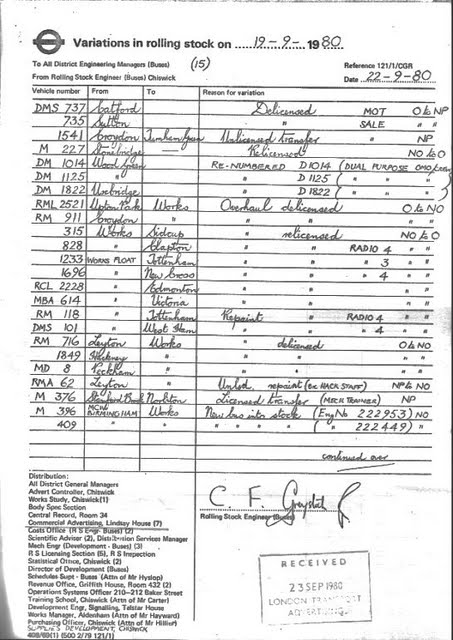 Variations in rolling stock on 19-9- 1980
To All District Engineering Managers (Buses) (15) Reference 121/1/CGR
From Rolling Stock Engineer (Buses) Chiswick Date 22-9-80
Vehicle number From To Reason for variation
DMS 737 Catford Delicensed MOT O to NP
735 Sutton " SALE " "
1541 Croydon Turnham Green Unlicensed Transfer NP
M 227 Stonebridge Relicensed NO to O
DM 1014 Wood Green RE-NUMBERED D1014 (DUAL PURPOSE OMO/
DM 1125 " " D1125 ( " " "
DM 1822 Uxbridge " D1822 ( " " "
RML 2521 Upton Park Works Overhaul delicensed O to NO
RM 911 Croydon " " " "
315 Works Sidcup " relicensed NO to O
828 " Clapton " " RADIO 4 " "
1233 WORKS FLOAT Tottenham " " " 3 " "
1696 " New Cross " " " 4 " "
RCL 2228 " Edmonton " " " "
MBA 614 " Victoria " " " "
RM 118 " Tottenham Repaint " RADIO 4 " "
DMS 101 " West Ham " " " 4 " "
RM 716 Leyton Works " delicensed O to NO
1849 Hackney " " " " "
MD 8 Peckham " " " " "
RMA 62 Leyton " Unlsd. repaint (EX HACK STAFF) NP to NO
M 376 Stamford Brook Norbiton Licensed Transfer (MECH TRAINER) NP
M 396 MCW BIRMINGHAM Works New bus into stock (Eng No 222953) NO
409 " " " " " " ( " 222449) "
continued over
Distribution:
All District General Managers
Advert Controller, Chiswick
Works Study, Chiswick (1)
Body Spec Section
Central Record, Room 34
Commercial Advertising, Lindsay House (7)
Costs Office (R S Engr Buses) (2)
Scientific Adviser (2), Distribution Services Manager
Mech Engr (Development) (3)
R S Licensing Section (5), R S Inspection
Statistical Office, Chiswick (2)
Director of Development (Buses)
Schedules Supt - Buses (Attn of Mr Hyslop)
Revenue Office, Griffith House, Room 432 (2)
Operations Systems Officer 210-212 Baker Street
Training School, Chiswick (Attn of Mr Carter)
Development Eng, Signalling, Telstar House
Works Manager, Aldenham (Attn of Mr Hayward)
Purchasing Officer, Chiswick (Attn of Mr Hillier)
SUPPLIES DEVELOPMENT, CHISWICK
408/69(1) (500 2/79 121/1)
C F
Rolling Stock Engineer (Buses)
RECEIVED
23 SEP 1980
LONDON TRANSPORT
ADVERTISING